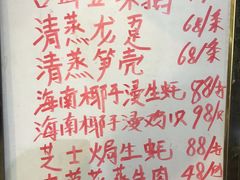 清蒸龙趸 68/条
清蒸笋壳 68/条
海南椰子浸生蚝 88/
海南椰子浸鸡 98/只
芝士焗生蚝 88/
牛肉 48/例